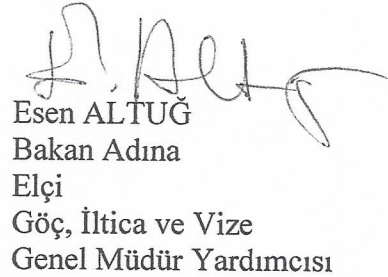 Esen ALTUĞ
Bakan Adına
Elçi
Göç, İltica ve Vize
Genel Müdür Yardımcısı